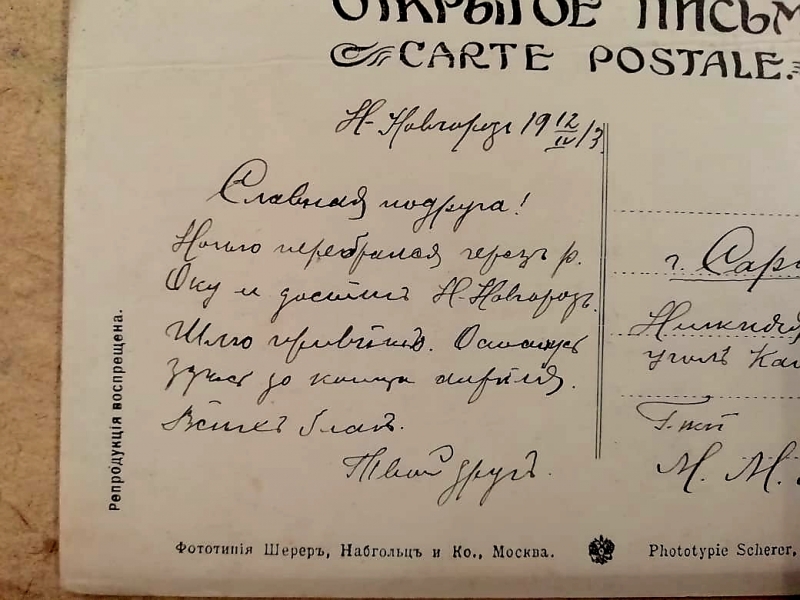 ОТКРЫТОЕ ПИСЬМ
CARTE POSTALE.
Н-Новгородъ 19 12/IV/3
Славная подруга!
Ночью перебрался черезъ р.
Оку и достигъ Н-Новгородъ.
Шлю привѣтъ. Останусь
здѣсь до конца апрѣля.
Всѣхъ благ.
Твой другъ.
г. Сара
Нижняя
уголъ Ка
Г-жѣ
М. М.
Репродукція воспрещена.
Фототипія Шереръ, Набгольцъ и Ко., Москва.
Phototypie Scherer,